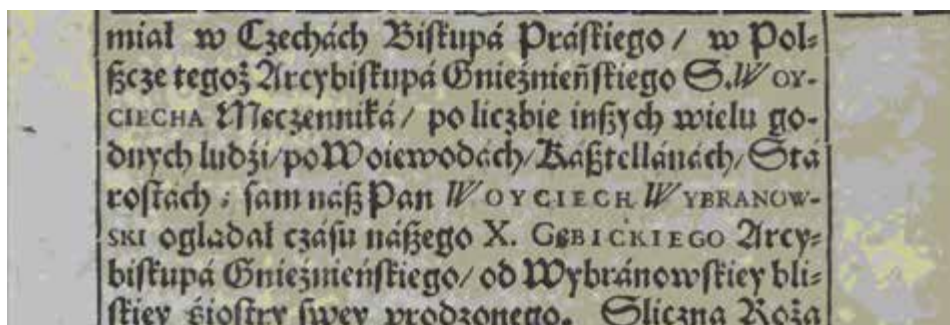 miał w Czechách Biſkupá Práſkiego / w Pol⸗
ſzcze tegoż Arcybiſkupá Gnieźnieńſkiego S. WOY-
CIECHA Męczenniká / po liczbie inſzych wielu go-
dnych ludźi / po Woiewodách / Káſztellánách / Stá
roſtach / ſam náſz Pan WOYCIECH WYBRANOW-
SKI oglądał czáſu náſzego X. GĘBICKIEGO Arcy⸗
biſkupá Gnieźnieńſkiego / od Wybránowſkiey bli⸗
ſkiey śioſtry ſwey vrodzonego. Sliczna Rożá